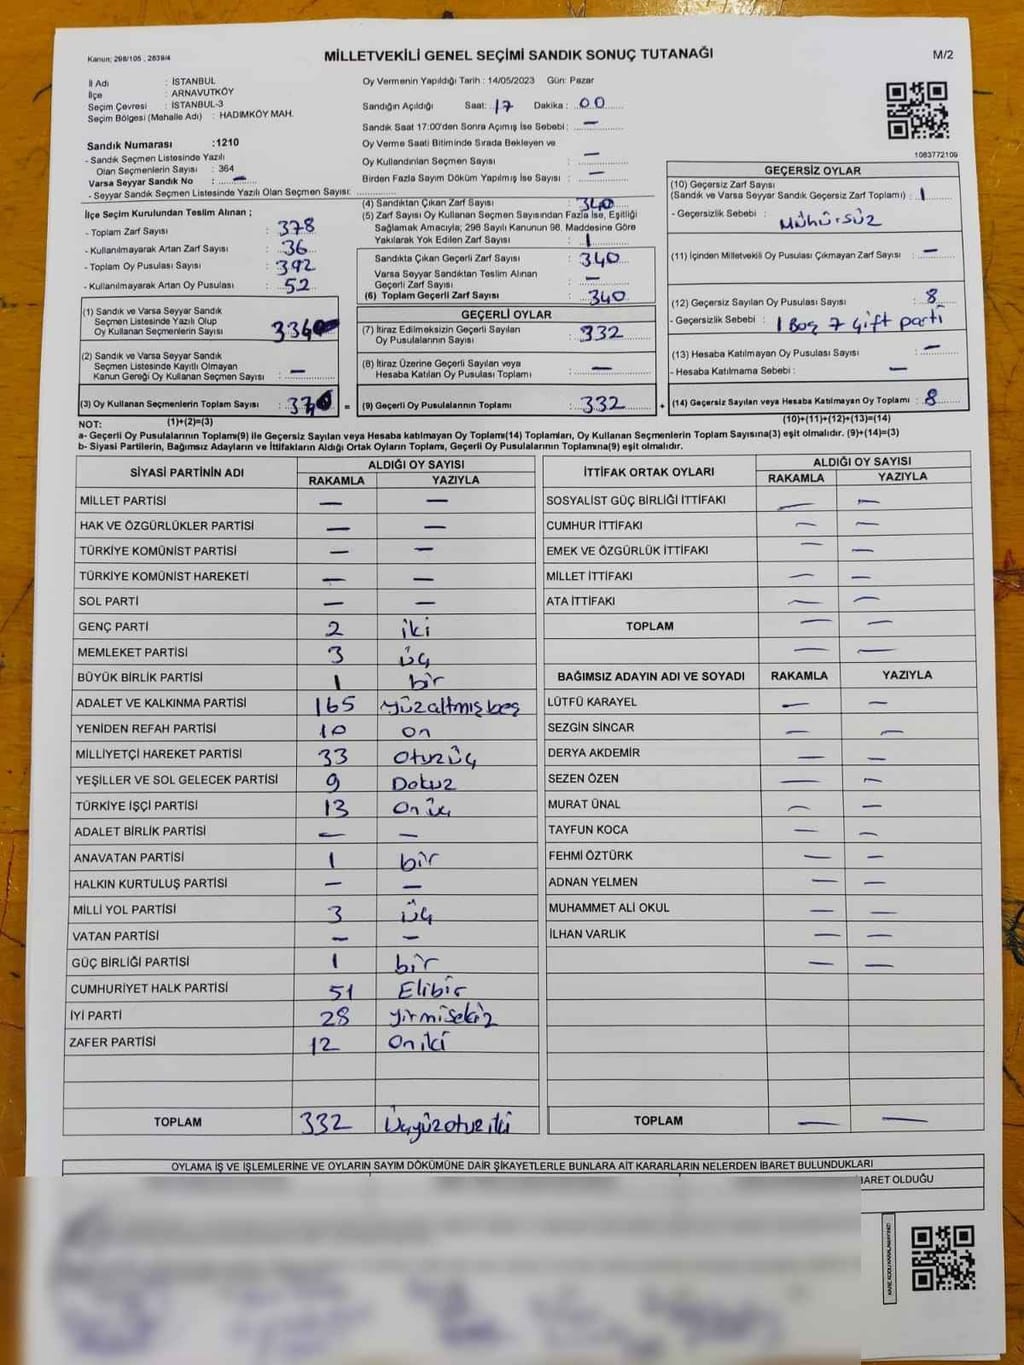 Kanun; 298/105 , 2839/4
MİLLETVEKİLİ GENEL SEÇİMİ SANDIK SONUÇ TUTANAĞI
M/2
İl Adı : İSTANBUL
İlçe : ARNAVUTKÖY
Seçim Çevresi : İSTANBUL-3
Seçim Bölgesi (Mahalle Adı) : HADIMKÖY MAH.
Sandık Numarası :1210
- Sandık Seçmen Listesinde Yazılı
Olan Seçmenlerin Sayısı : 364
Varsa Seyyar Sandık No : —
- Seyyar Sandık Seçmen Listesinde Yazılı Olan Seçmen Sayısı:
İlçe Seçim Kurulundan Teslim Alınan ;
- Toplam Zarf Sayısı : 378
- Kullanılmayarak Artan Zarf Sayısı : 36
- Toplam Oy Pusulası Sayısı : 392
- Kullanılmayarak Artan Oy Pusulası : 52
(1) Sandık ve Varsa Seyyar Sandık
Seçmen Listesinde Yazılı Olup
Oy Kullanan Seçmenlerin Sayısı :
(2) Sandık ve Varsa Seyyar Sandık
Seçmen Listesinde Kayıtlı Olmayan
Kanun Gereği Oy Kullanan Seçmen Sayısı : —
(3) Oy Kullanan Seçmenlerin Toplam Sayısı :
(1)+(2)=(3)
Oy Vermenin Yapıldığı Tarih : 14/05/2023 Gün: Pazar
Sandığın Açıldığı Saat: 17 Dakika : 00
Sandık Saat 17:00'den Sonra Açımış İse Sebebi : —
Oy Verme Saati Bitiminde Sırada Bekleyen ve
Oy Kullandırılan Seçmen Sayısı : —
Birden Fazla Sayım Döküm Yapılmış İse Sayısı : —
(4) Sandıktan Çıkan Zarf Sayısı : 340
(5) Zarf Sayısı Oy Kullanan Seçmen Sayısından Fazla İse, Eşitliği
Sağlamak Amacıyla; 298 Sayılı Kanunun 98. Maddesine Göre
Yakılarak Yok Edilen Zarf Sayısı : 1
Sandıkta Çıkan Geçerli Zarf Sayısı : 340
Varsa Seyyar Sandıktan Teslim Alınan
Geçerli Zarf Sayısı : —
(6) Toplam Geçerli Zarf Sayısı : 340
GEÇERLİ OYLAR
(7) İtiraz Edilmeksizin Geçerli Sayılan
Oy Pusulalarının Sayısı : 332
(8) İtiraz Üzerine Geçerli Sayılan veya
Hesaba Katılan Oy Pusulası Toplamı : —
= (9) Geçerli Oy Pusulalarının Toplamı : 332 +
1063772109
GEÇERSİZ OYLAR
(10) Geçersiz Zarf Sayısı
(Sandık ve Varsa Seyyar Sandık Geçersiz Zarf Toplamı) : 1
- Geçersizlik Sebebi : Mühürsüz
(11) İçinden Milletvekili Oy Pusulası Çıkmayan Zarf Sayısı : —
(12) Geçersiz Sayılan Oy Pusulası Sayısı : 8
- Geçersizlik Sebebi : 1 Boş 7 Çift parti
(13) Hesaba Katılmayan Oy Pusulası Sayısı : —
- Hesaba Katılmama Sebebi : —
(14) Geçersiz Sayılan veya Hesaba Katılmayan Oy Toplamı : 8
(10)+(11)+(12)+(13)=(14)
NOT:
a- Geçerli Oy Pusulalarının Toplamı(9) ile Geçersiz Sayılan veya Hesaba katılmayan Oy Toplamı(14) Toplamları, Oy Kullanan Seçmenlerin Toplam Sayısına(3) eşit olmalıdır. (9)+(14)=(3)
b- Siyasi Partilerin, Bağımsız Adayların ve İttifakların Aldığı Ortak Oyların Toplamı, Geçerli Oy Pusulalarının Toplamına(9) eşit olmalıdır.
SİYASİ PARTİNİN ADI ALDIĞI OY SAYISI
RAKAMLA YAZIYLA
MİLLET PARTİSİ — —
HAK VE ÖZGÜRLÜKLER PARTİSİ — —
TÜRKİYE KOMÜNİST PARTİSİ — —
TÜRKİYE KOMÜNİST HAREKETİ — —
SOL PARTİ — —
GENÇ PARTİ 2 iki
MEMLEKET PARTİSİ 3 üç
BÜYÜK BİRLİK PARTİSİ 1 bir
ADALET VE KALKINMA PARTİSİ 165 yüzaltmışbeş
YENİDEN REFAH PARTİSİ 10 on
MİLLİYETÇİ HAREKET PARTİSİ 33 Otuzüç
YEŞİLLER VE SOL GELECEK PARTİSİ 9 Dokuz
TÜRKİYE İŞÇİ PARTİSİ 13 Onüç
ADALET BİRLİK PARTİSİ — —
ANAVATAN PARTİSİ 1 bir
HALKIN KURTULUŞ PARTİSİ — —
MİLLİ YOL PARTİSİ 3 üç
VATAN PARTİSİ — —
GÜÇ BİRLİĞİ PARTİSİ 1 bir
CUMHURİYET HALK PARTİSİ 51 Elibir
İYİ PARTİ 28 yirmisekiz
ZAFER PARTİSİ 12 Oniki
TOPLAM 332 Üçyüzotuziki
İTTİFAK ORTAK OYLARI ALDIĞI OY SAYISI
RAKAMLA YAZIYLA
SOSYALİST GÜÇ BİRLİĞİ İTTİFAKI — —
CUMHUR İTTİFAKI — —
EMEK VE ÖZGÜRLÜK İTTİFAKI — —
MİLLET İTTİFAKI — —
ATA İTTİFAKI — —
TOPLAM — —
— —
BAĞIMSIZ ADAYIN ADI VE SOYADI RAKAMLA YAZIYLA
LÜTFÜ KARAYEL — —
SEZGİN SİNCAR — —
DERYA AKDEMİR — —
SEZEN ÖZEN — —
MURAT ÜNAL — —
TAYFUN KOCA — —
FEHMİ ÖZTÜRK — —
ADNAN YELMEN — —
MUHAMMET ALİ OKUL — —
İLHAN VARLIK — —
— —
TOPLAM — —
OYLAMA İŞ VE İŞLEMLERİNE VE OYLARIN SAYIM DÖKÜMÜNE DAİR ŞİKAYETLERLE BUNLARA AİT KARARLARIN NELERDEN İBARET BULUNDUKLARI
BARET OLDUĞU